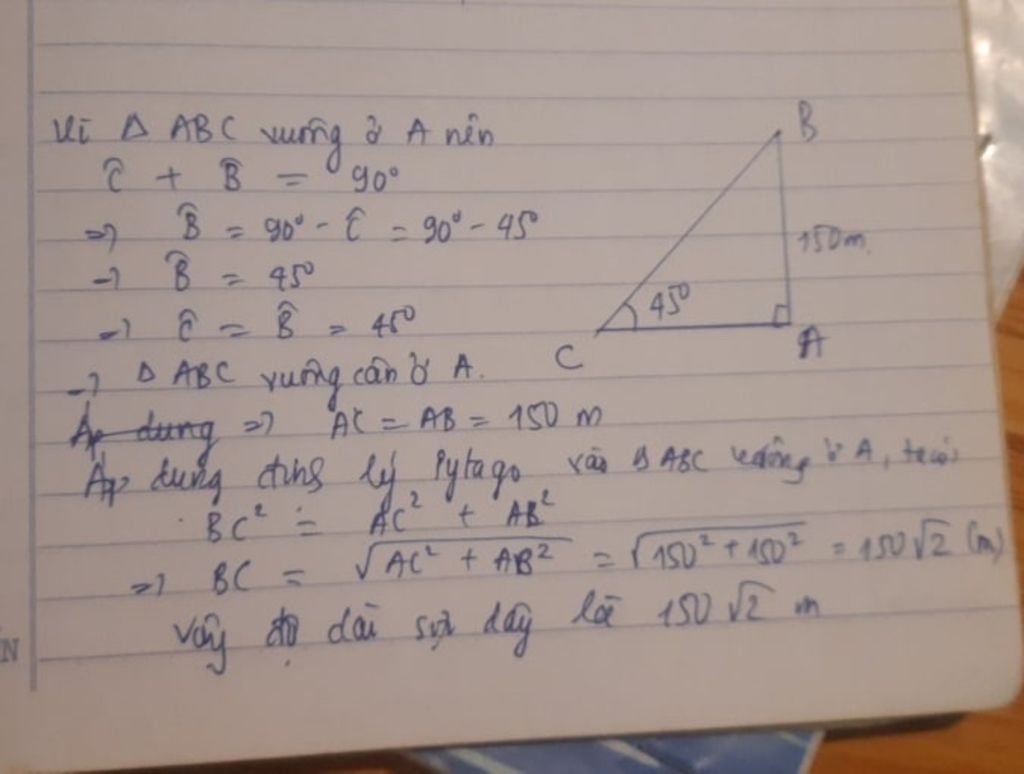 Vì Δ ABC vuông ở A nên
Ĉ + B̂ = 90°
=> B̂ = 90° - Ĉ = 90° - 45°
=> B̂ = 45°
=> Ĉ = B̂ = 45°
=> Δ ABC vuông cân ở A.
Áp dung => AC = AB = 150 m
Áp dung định lý Pytago vào Δ ABC vuông ở A, ta có:
BC² = AC² + AB²
=> BC = √AC² + AB² = √150² + 150² = 150√2 (m)
Vậy độ dài sợi dây là 150√2 m
B
150m
45°
C
A
N